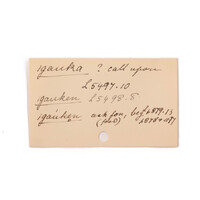 igauka ? call upon
L5497.10
igauken L5498.5
igauken ask for, beg L879.13
(plu) L878+1187